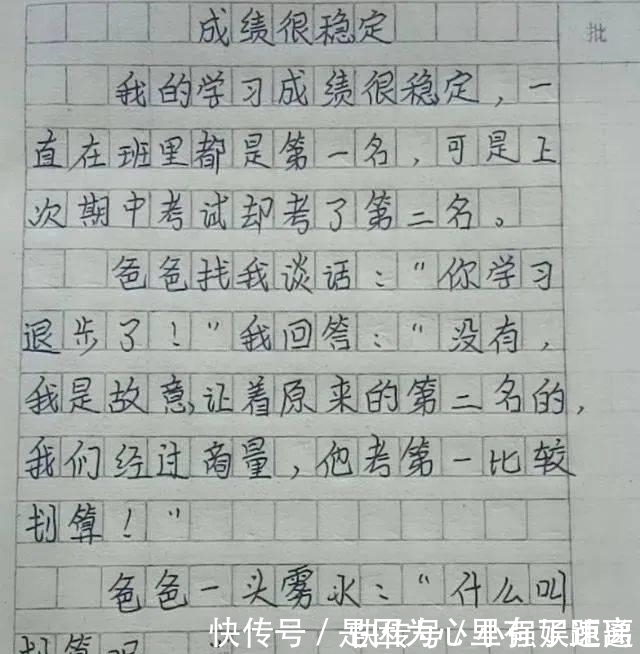 成绩很稳定
批
我的学习成绩很稳定，一
直在班里都是第一名，可是上
次期中考试却考了第二名。
爸爸找我谈话：“你学习
退步了！”我回答：“没有，
我是故意让着原来的第二名的，
我们经过商量，他考第一比较
划算！”
爸爸一头雾水：“什么叫
划算呢
快传号／